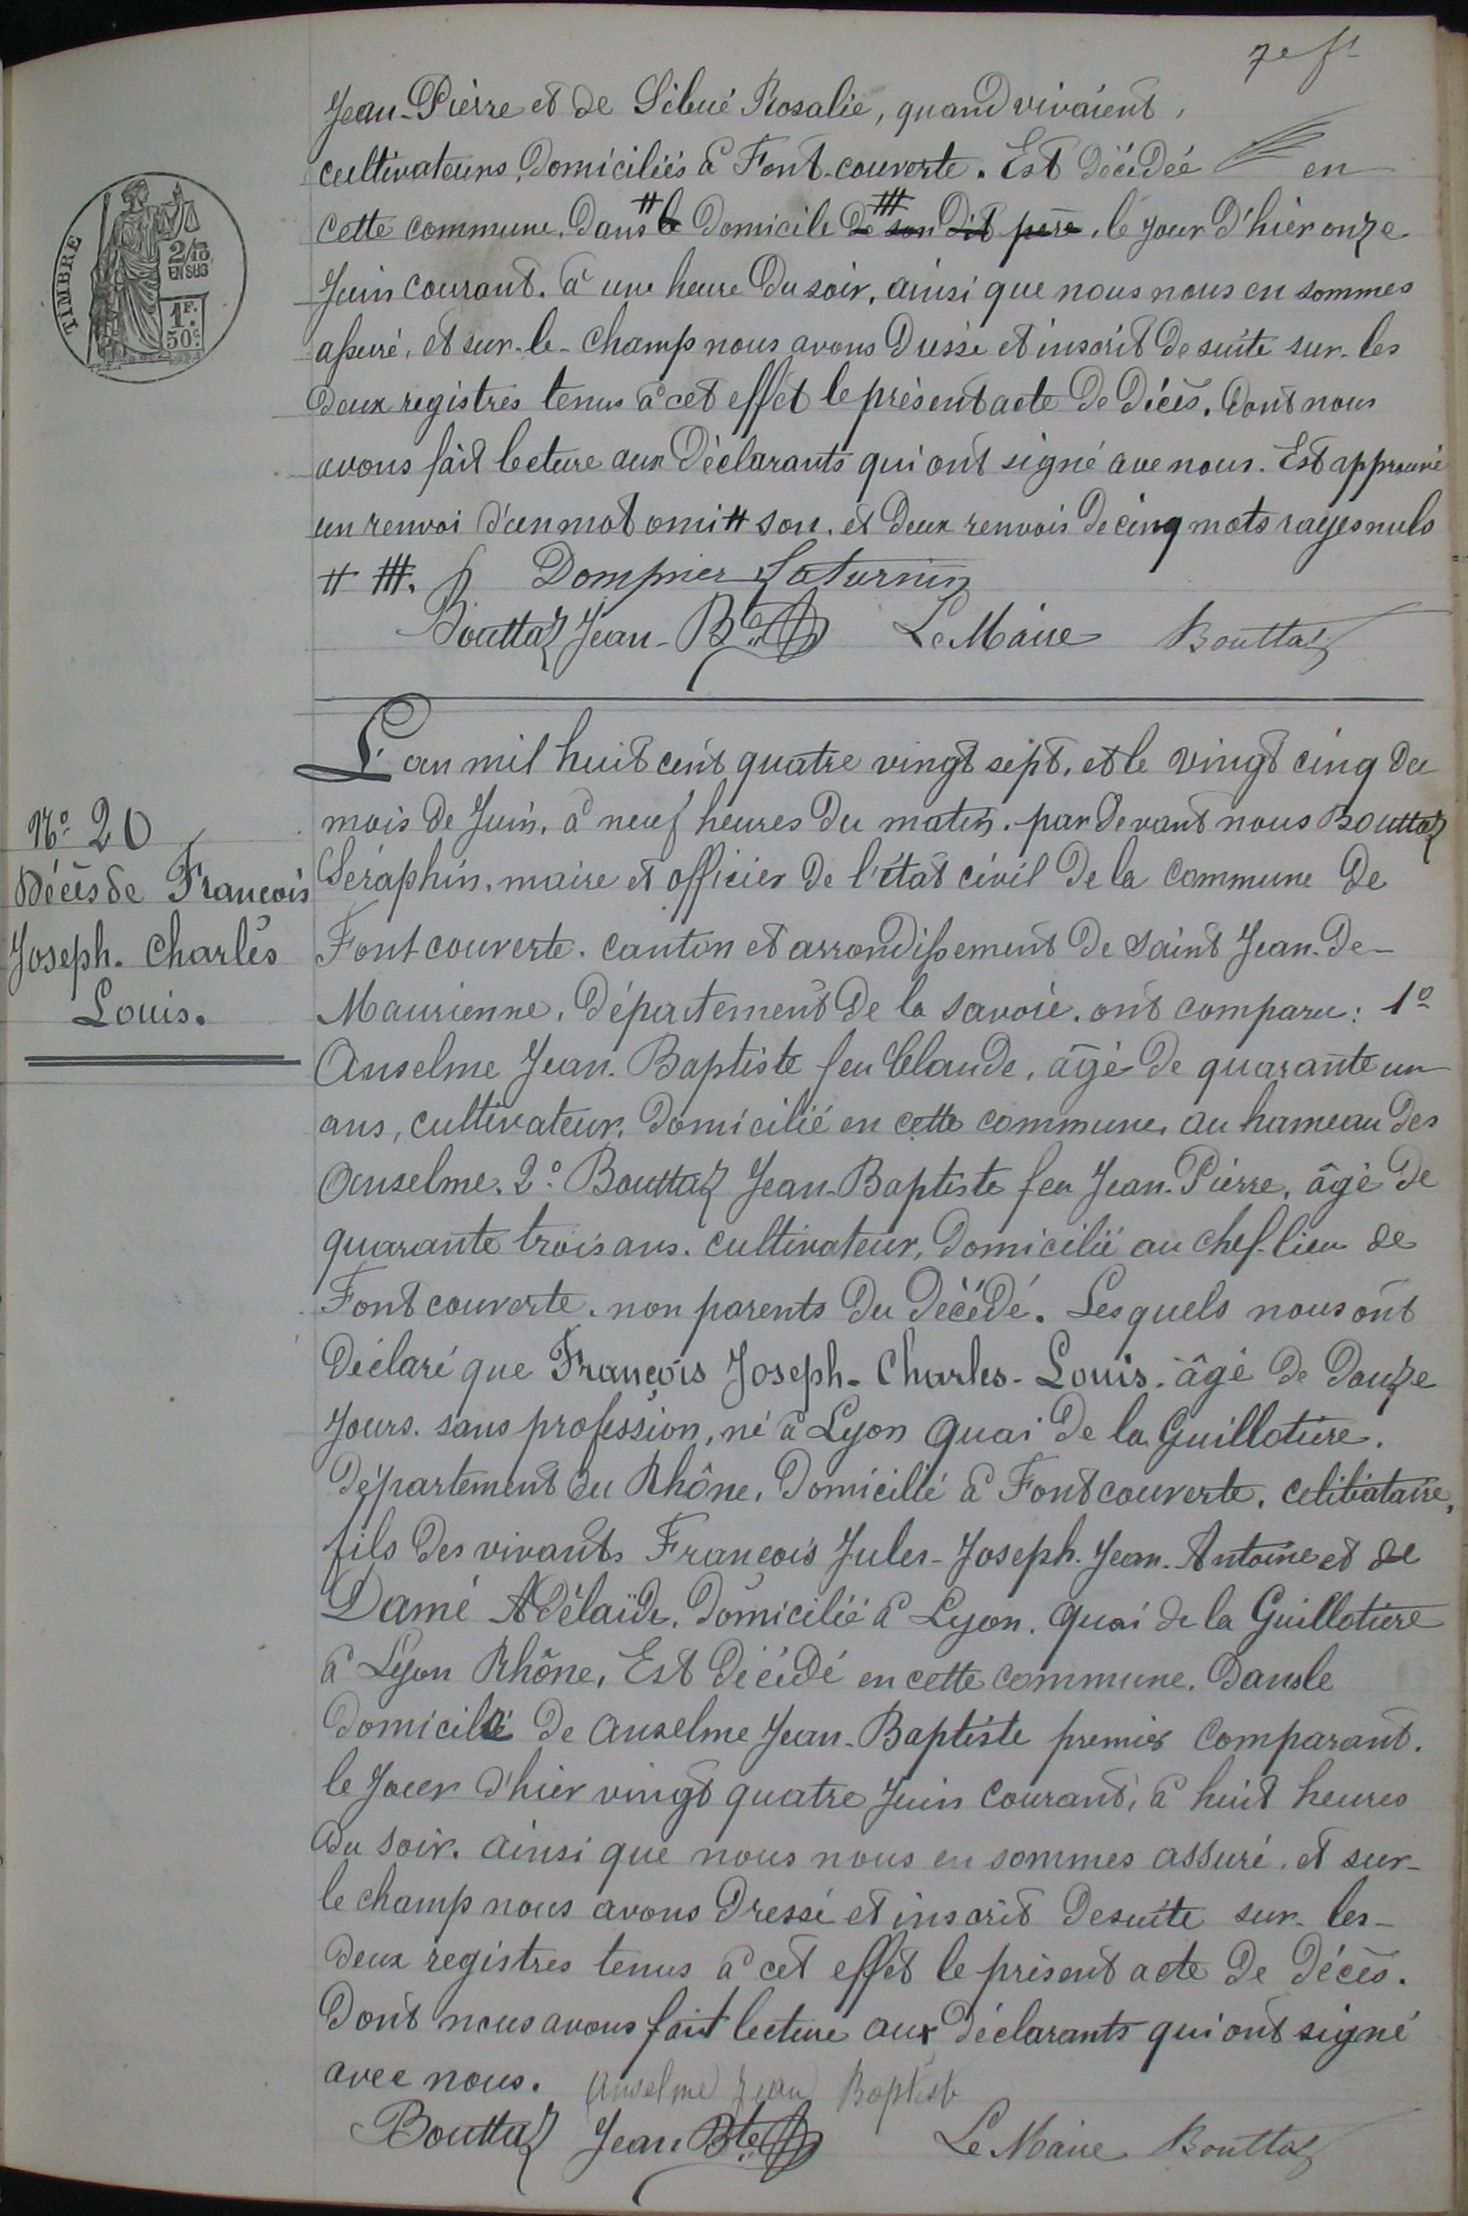 7e ft
Jean-Pierre et de Sibué Rosalie, quand vivaient,
cultivateurs, domiciliés à Font-couverte. Est décédée en
cette commune, dans # le domicile de ### son dit père, le jour d'hier onze
Juin courant, à une heure du soir, ainsi que nous nous en sommes
assuré, et sur-le-champ nous avons dressé et inscrit de suite sur les
deux registres tenus à cet effet le présent acte de décès, dont nous
avons fait lecture aux déclarants qui ont signé ave nous. Est approuvé
un renvoi d'un mot omi # son, et deux renvois de cinq mots rayés nuls
# ###. Dompnier Saturnin
Bouttaz Jean-Bte Le Maire Bouttaz
TIMBRE
2/10
EN SUS
1F.
50c
L'an mil huit cent quatre vingt sept, et le vingt cinq du
mois de Juin, à neuf heures du matin, par devant nous Bouttaz
Séraphin, maire et officier de l'état civil de la commune de
Fontcouverte, canton et arrondissement de Saint Jean-de-
Maurienne, département de la Savoie, ont comparu: 1o
Anselme Jean-Baptiste feu Claude, âgé de quarante un
ans, cultivateur, domicilié en cette commune, au hameau des
Anselme. 2o Bouttaz Jean-Baptiste feu Jean-Pierre, âgé de
quarante trois ans, cultivateur, domicilié au chef-lieu de
Fontcouverte, non parents du décédé. Lesquels nous ont
déclaré que François Joseph-Charles-Louis, âgé de douze
jours, sans profession, né à Lyon quai de la Guillotière,
département du Rhône, domicilié à Fontcouverte, célibataire,
fils des vivants François Jules-Joseph-Jean-Antoine et de
Damé Adélaïde, domicilié à Lyon, quai de la Guillotière
à Lyon Rhône, Est décédé en cette commune, dans le
domicile de Anselme Jean-Baptiste premier comparant,
le jour d'hier vingt quatre Juin courant, à huit heures
du soir, ainsi que nous nous en sommes assuré, et sur-
le champ nous avons dressé et inscrit desuite sur les-
deux registres tenus à cet effet le présent acte de décès.
Dont nous avons fait lecture aux déclarants qui ont signé
avec nous. Anselme Jean Baptiste
Bouttaz Jean Bte Le Maire Bouttaz
No 20
Décès de François
Joseph-Charles
Louis.